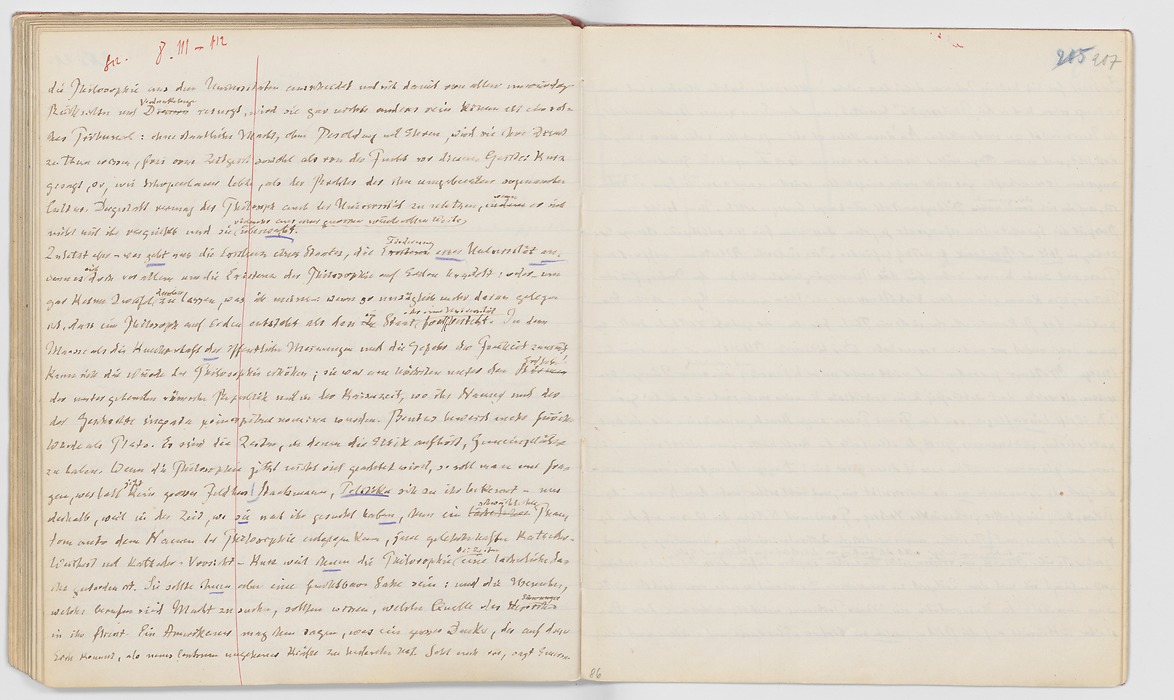 8. III – 112
215 207
die Philosophie aus den Universitäten ausscheidet und sich damit von allen unwürdigen
Rücksichten und Verdunkelungen reinigt, wird sie gar nichts anderes sein können als ein sol-
ches Tribunal: ohne staatliche Macht, ohne Besoldung und Ehren, wird sie ihren Dienst
zu thun wissen, frei vom Zeitgeiste sowohl als von der Furcht vor diesem Geiste: kurz
gesagt, so, wie Schopenhauer lebte, als der Richter der ihn umgebenden sogenannten
Cultur. Dergestalt vermag der Philosoph auch der Universität zu nützen, wenn er sich
nicht mit ihr verquickt und sie vielmehr aus einer gewissen würdevollen Weite
übersieht.
Zuletzt aber – was gilt uns die Existenz eines Staates, die Förderung einer Universität,
wenn es sich doch vor allem um die Existenz der Philosophie auf Erden handelt! oder – um
gar keinen Zweifel zu lassen, was ich meine – wenn so unsäglich mehr daran gelegen
ist, dass ein Philosoph auf Erden entsteht als dass ein Staat oder eine Universität fortbesteht. In dem
Maasse als die Knechtschaft der öffentlichen Meinungen und die Gefahr der Freiheit zunimmt,
kann sich die Würde der Philosophie erhöhen; sie war am höchsten unter den Erdbeben
der untergehenden römischen Republik und in der Kaiserzeit, wo ihr Name und der
der Geschichte ingrata principibus nomina wurden. Brutus beweist mehr für ihre
Würde als Plato. Es sind die Zeiten, in denen die Ethik aufhört, Gemeinplätze
zu haben. Wenn die Philosophie jetzt nicht viel geachtet wird, so soll man nur fra-
gen, weshalb jetzt kein grosser Feldherr Staatsmann, sich zu ihr bekennt – nur
deshalb, weil in der Zeit, wo sie nach ihr gesucht haben, ihm ein schwächliches Phan-
tom unter dem Namen der Philosophie entgegen kam, jene gelehrtenhafte Katheder-
Weisheit und Katheder-Vorsicht – kurz weil ihnen die Philosophie bei Zeiten eine lächerliche Sa-
che geworden ist. Sie sollte ihnen aber eine furchtbare Sache sein: und die Menschen,
welche berufen sind Macht zu suchen, sollten wissen, welche Quelle des Heroischen
in ihr fliesst. Ein Amerikaner mag ihnen sagen, was ein grosser Denker, der auf diese
Erde kommt, als neues Centrum ungeheurer Kräfte zu bedeuten hat. Seht euch vor, sagt Emerson
86